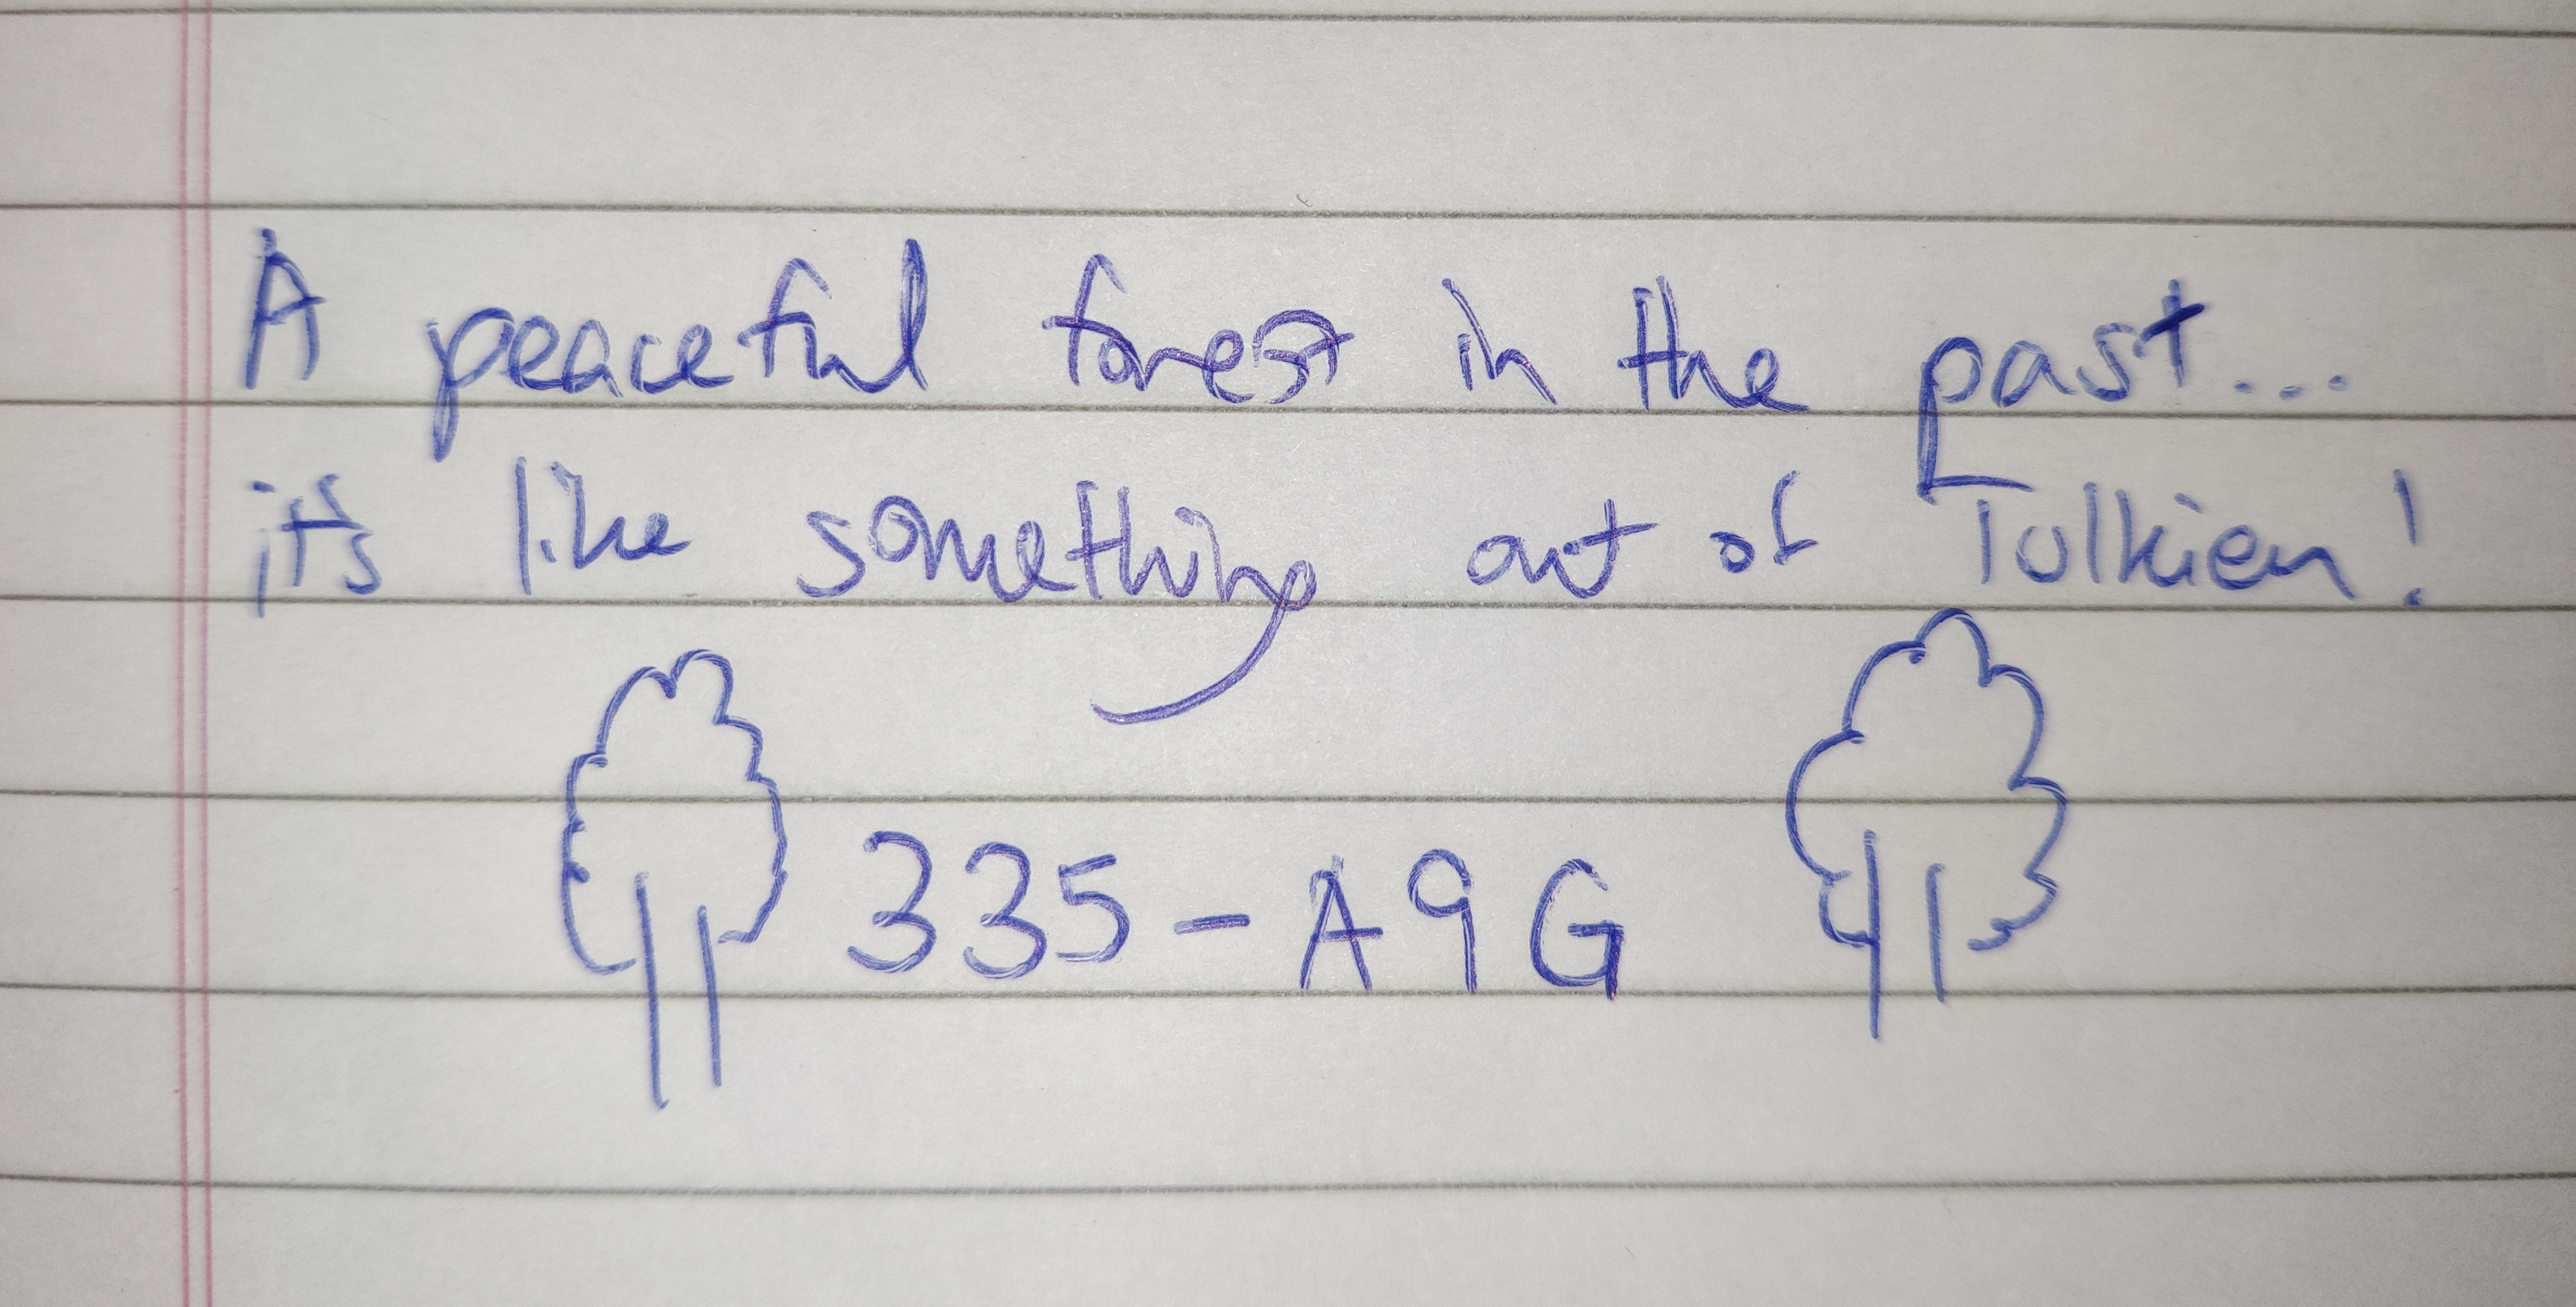 A peaceful forest in the past...
it's like something out of Tolkien!
335-A9G